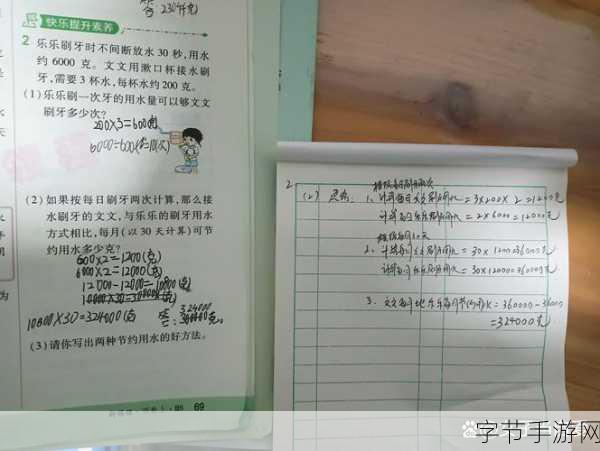 答: 2304千克
快乐提升素养
2 乐乐刷牙时不间断放水 30 秒,用水
约 6000 克。文文用漱口杯接水刷
牙,需要 3 杯水,每杯水约 200 克。
(1)乐乐刷一次牙的用水量可以够文文
刷牙多少次?
200×3=600(克)
6000÷600=10(次)
(2)如果按每日刷牙两次计算,那么接
水刷牙的文文,与乐乐的刷牙用水
方式相比,每月(以 30 天计算)可节
约用水多少克?
600×2=1200(克)
6000×2=12000(克)
12000-1200=10800(克)
10800×30=324000(克)
答: 324000克
(3)请你写出两种节约用水的好方法。
69
2
(2)
1. 计算每日文文刷牙用水 = 3×200×2=1200克
计算每日乐乐刷牙用水 = 2×6000=12000克
2. 计算每月文文刷牙用水 = 30×1200=36000克
计算每月乐乐刷牙用水 = 30×12000=360000克
3. 文文每月比乐乐每月节约用水=360000-36000
=324000克
字节手游网